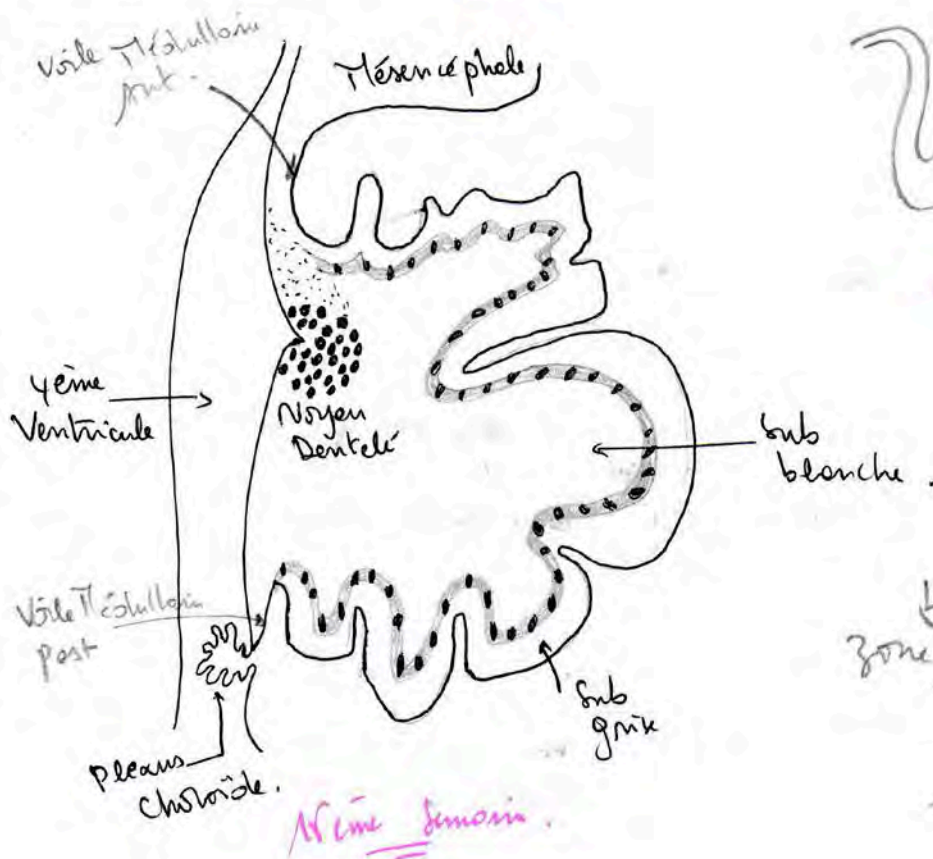 Voile Médullaire
ant.
Mésencéphale
4ème
Ventricule
Noyau
Dentelé
Sub
blanche.
Voile Médullaire
post
Zone
Sub
grise
Plexus
choroïde.
ème Semaine.